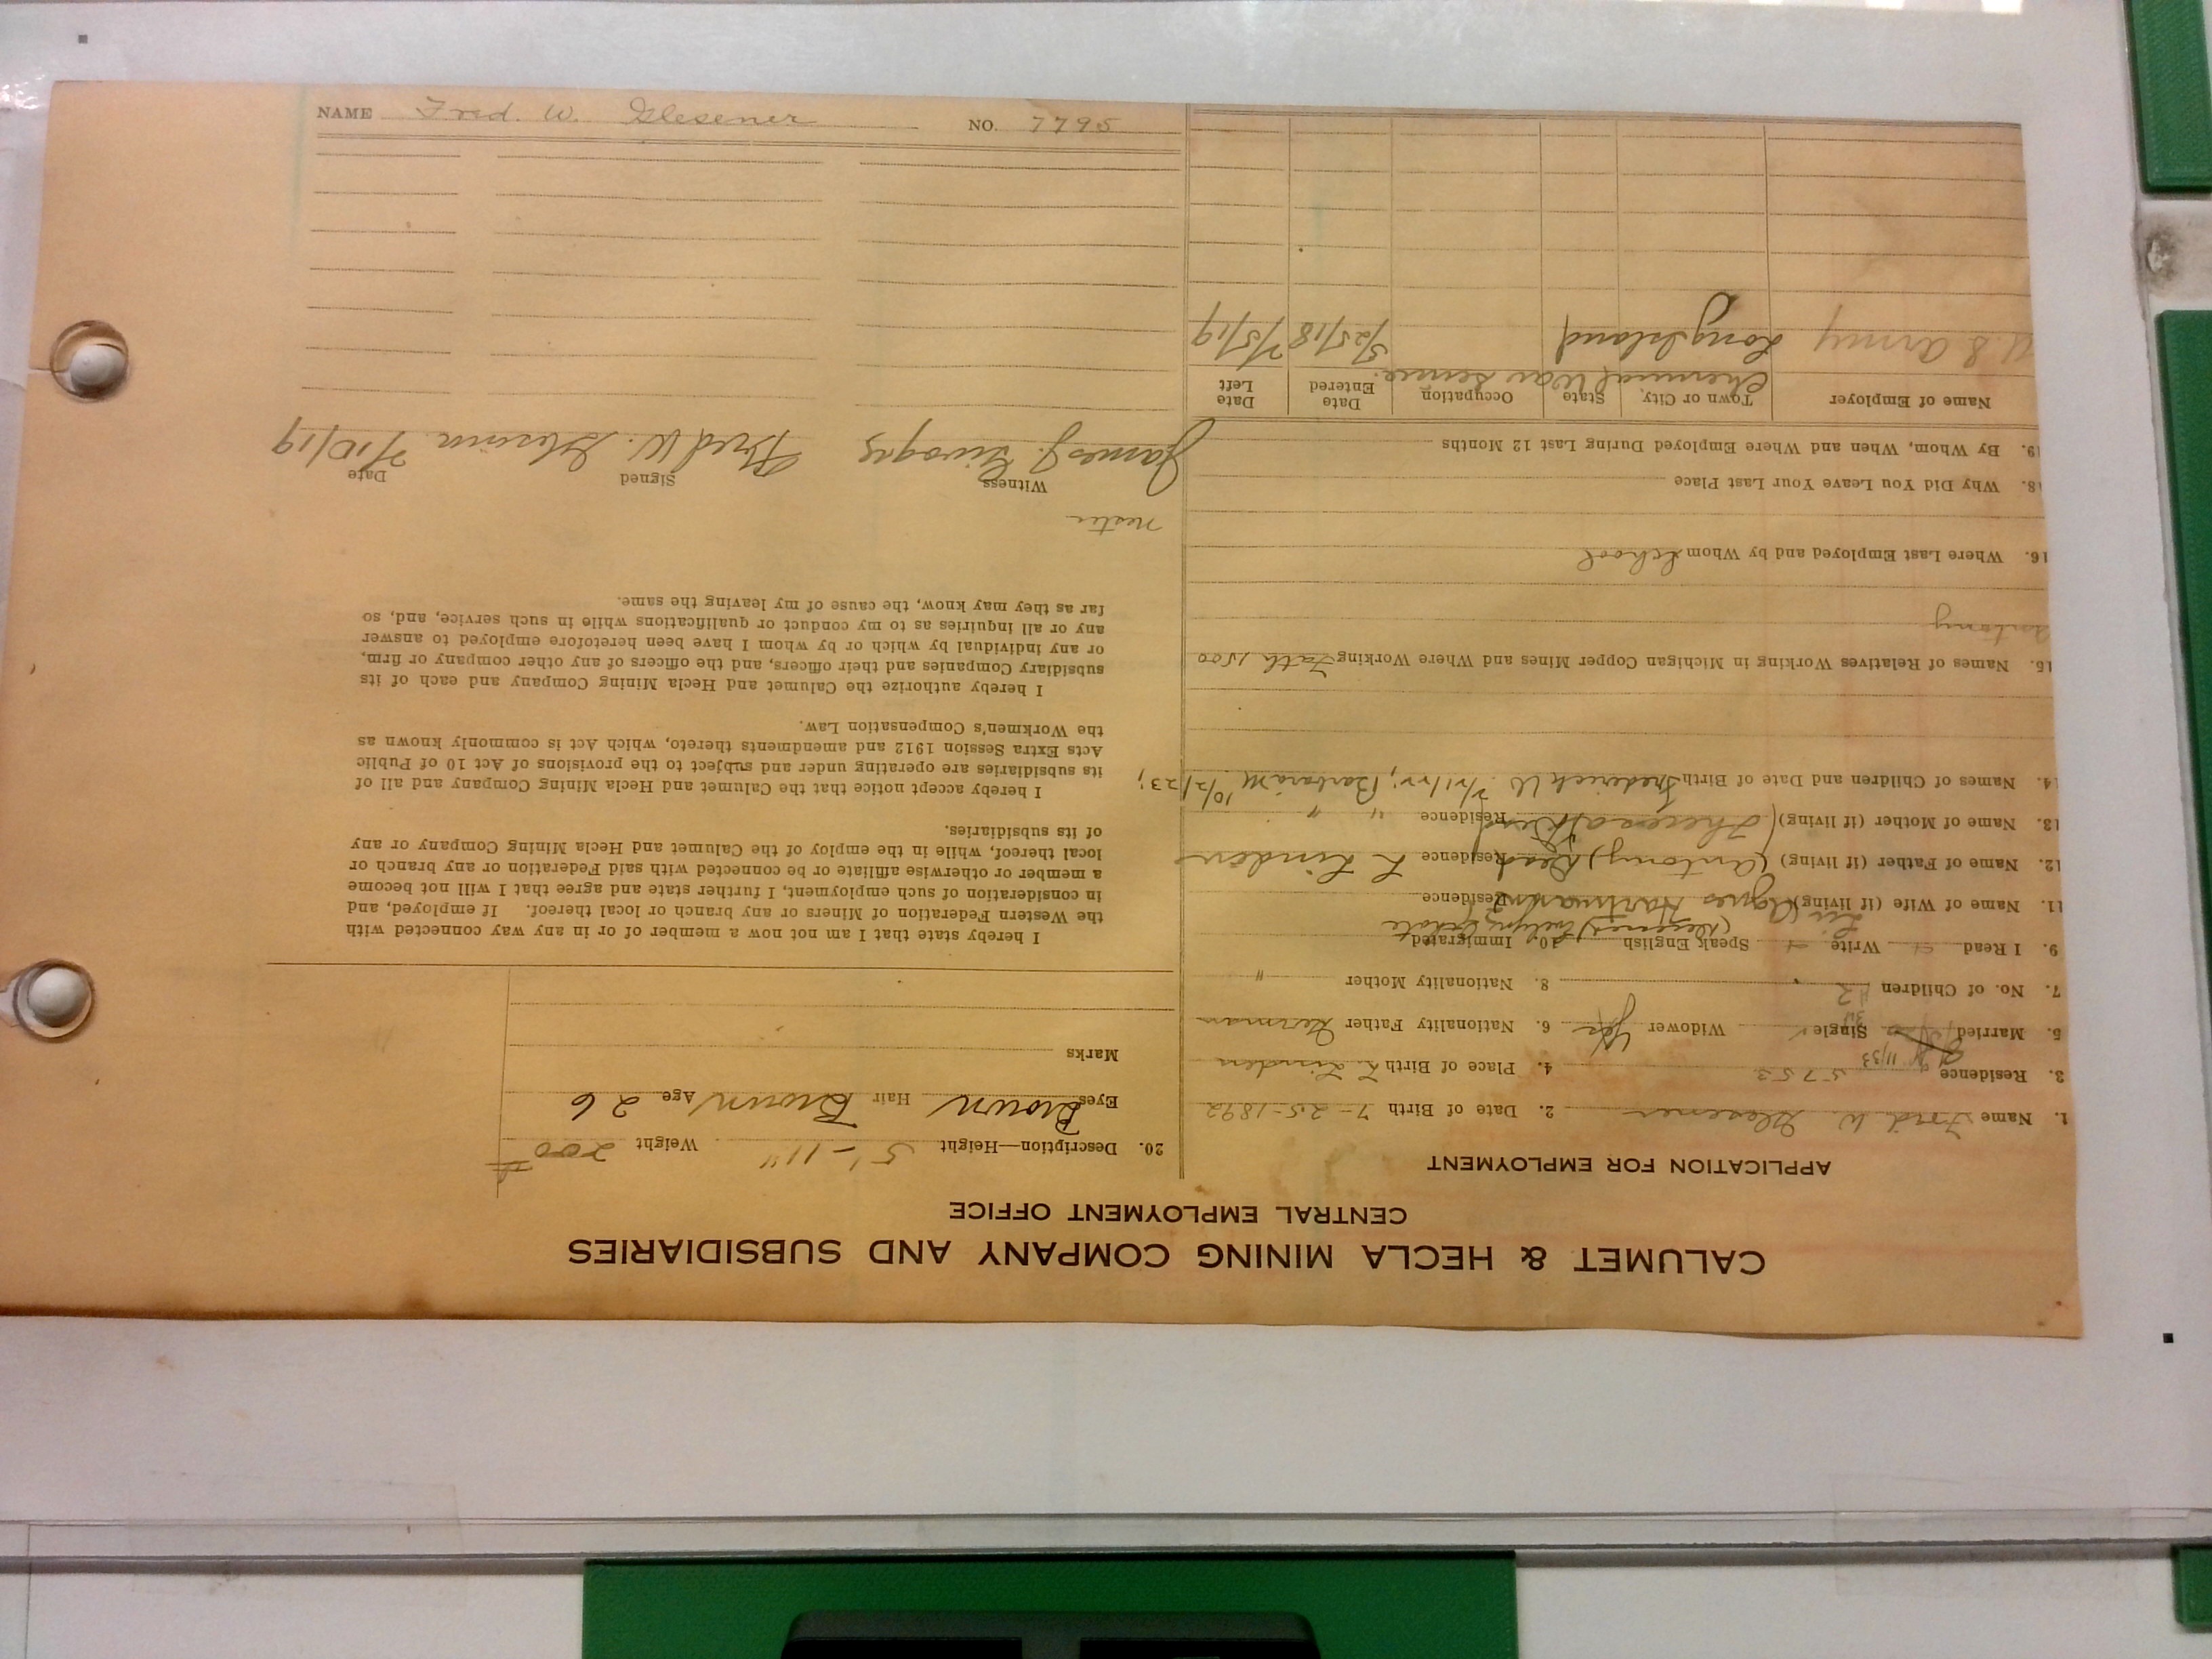 CALUMET & HECLA MINING COMPANY AND SUBSIDIARIES
CENTRAL EMPLOYMENT OFFICE
APPLICATION FOR EMPLOYMENT
1. Name Fred. W. Glesener 2. Date of Birth 7-25-1892
3. Residence 5753 4. Place of Birth L. Linden
5. Married Single Widower Yes 6. Nationality Father German
7. No. of Children 2 8. Nationality Mother "
9. I Read Write Speak English 10. Immigrated
11. Name of Wife (if living) (Agnes Hartman) Residence
12. Name of Father (if living) (Antony) Dead Residence L. Linden
13. Name of Mother (if living) (Theresa Residence " "
14. Names of Children and Date of Birth Frederick W. Barbara M. 10/2/23;
15. Names of Relatives Working in Michigan Copper Mines and Where Working Fath 1500
Antony
16. Where Last Employed and by Whom School
18. Why Did You Leave Your Last Place
19. By Whom, When and Where Employed During Last 12 Months
Name of Employer Town or City State Occupation Date Entered Date Left
Chemical War Service.
U.S Army Long Island 5/25/18 2/5/19
20. Description—Height 5'-11" Weight 200
Eyes Brown Hair Brown Age 26
Marks
I hereby state that I am not now a member of or in any way connected with
the Western Federation of Miners or any branch or local thereof. If employed, and
in consideration of such employment, I further state and agree that I will not become
a member or otherwise affiliate or be connected with said Federation or any branch or
local thereof, while in the employ of the Calumet and Hecla Mining Company or any
of its subsidiaries.
I hereby accept notice that the Calumet and Hecla Mining Company and all of
its subsidiaries are operating under and subject to the provisions of Act 10 of Public
Acts Extra Session 1912 and amendments thereto, which Act is commonly known as
the Workmen's Compensation Law.
I hereby authorize the Calumet and Hecla Mining Company and each of its
subsidiary Companies and their officers, and the officers of any other company or firm,
or any individual by which or by whom I have been heretofore employed to answer
any or all inquiries as to my conduct or qualifications while in such service, and, so
far as they may know, the cause of my leaving the same.
Witness Signed Date
James J. Fred W. Glesener 2/10/19
NAME Fred. W. Glesener NO. 7795